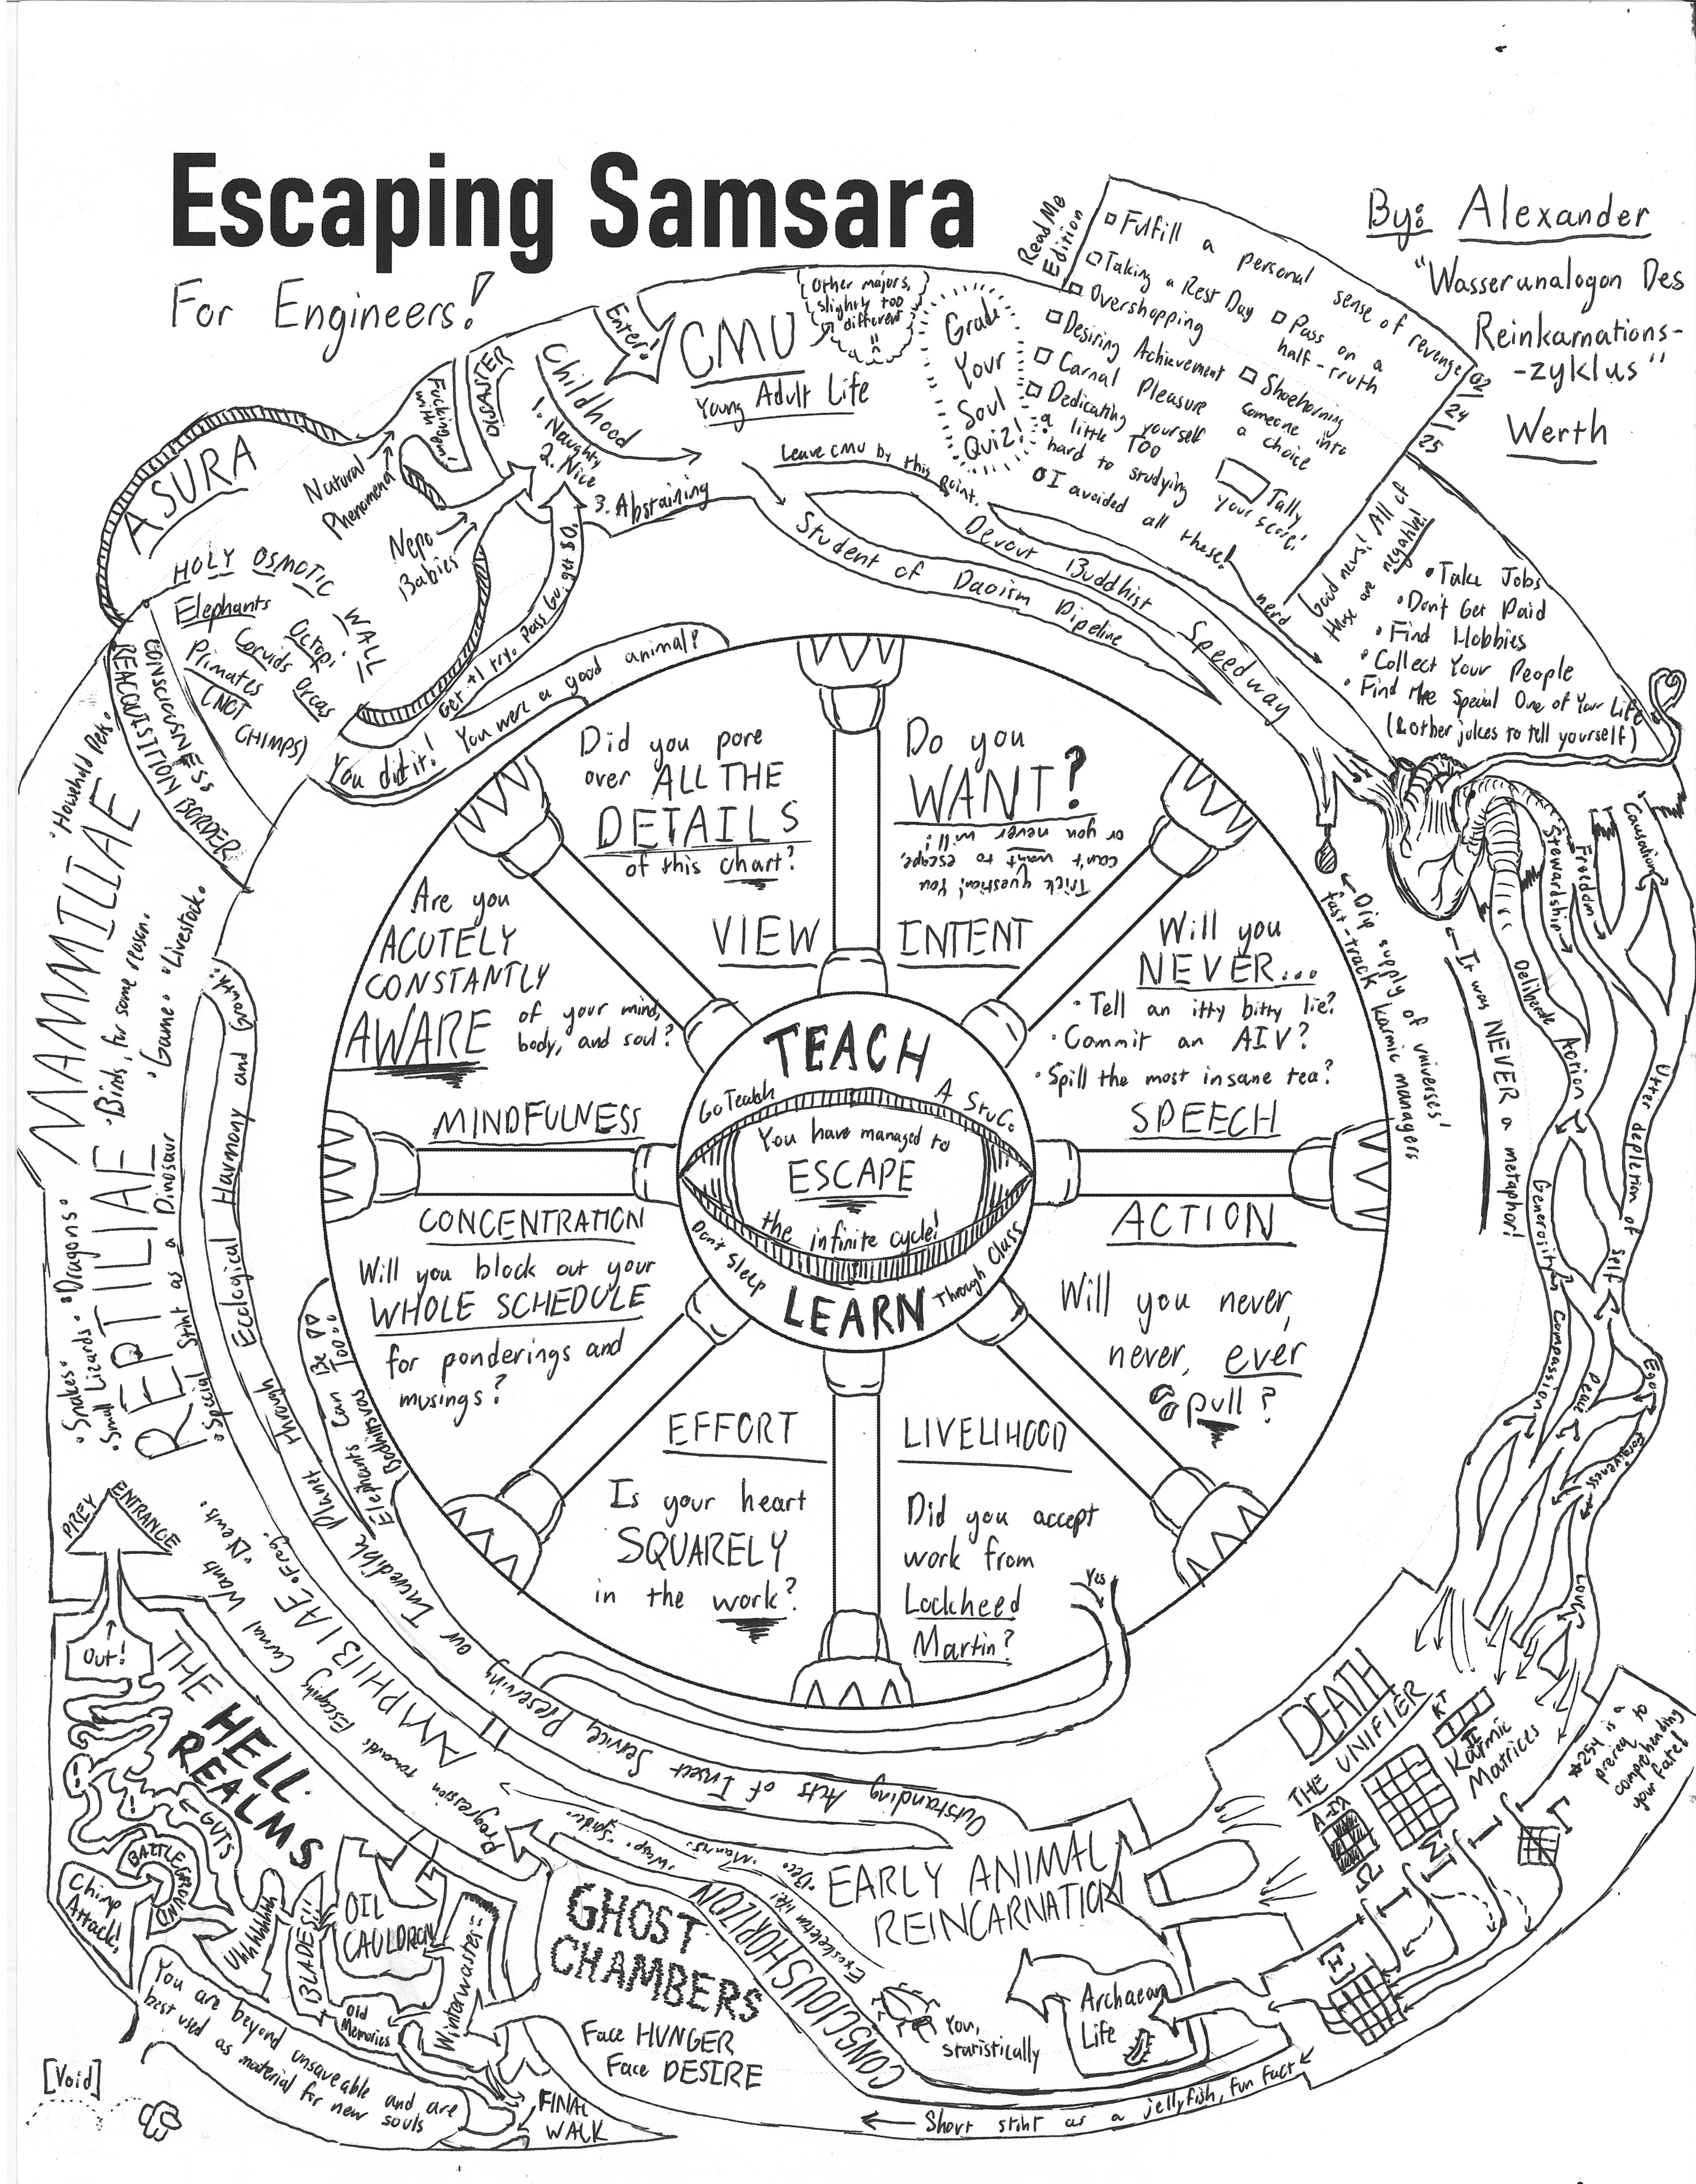 Escaping Samsara
For Engineers!
By: Alexander
"Wasseranalogon Des
Reinkarnations-
-zyklus"
Werth
ReadMe
Edition
Fulfill a personal sense of revenge
Taking a Rest Day
Pass on a
half-truth
Overshopping
Desiring Achievement
Shoehorning
someone into
a choice
Carnal Pleasure
Dedicating yourself
a little too
hard to studying
I avoided all these!
Tally
your score!
02/
24/
25
Grade
Your
Soul
Quiz!
Other majors,
slightly too
different
Enter!
CMU
Young Adult Life
Leave CMU by this
point.
Childhood
1. Naughty
2. Nice
3. Abstaining
DISASTER
Fucking
with
Natural
Phenomena
Nepo
Babies
ASURA
HOLY OSMOTIC
WALL
Elephants
Corvids
Octopi
Primates
Orcas
(NOT
CHIMPS)
Get +1 try. Pass Go, get $0.
You did it! You were a good animal?
CONSCIOUSNESS
REACQUISITION BORDER
Student of Daoism Pipeline
Devout Buddhist Speedway
nerd
Good news! All of
these are negative!
• Take Jobs
• Don't Get Paid
• Find Hobbies
• Collect Your People
• Find the Special One of Your Life
(& other jokes to tell yourself)
← Drip supply of universes'
fast-track karmic managers
← It was NEVER a metaphor!
Stewardship
Freedom
Causation
Deliberate Action
Utter depletion of self
Generosity
Compassion
Peace
Ego
Forgiveness
Love
Did you pore
over ALL THE
DETAILS
of this chart?
VIEW
Do you
WANT?
Trick question! You
can't want to escape,
or you never will!
INTENT
Will you
NEVER...
• Tell an itty bitty lie?
• Commit an AIV?
• Spill the most insane tea?
SPEECH
ACTION
Will you never,
never, ever
pull?
LIVELIHOOD
Did you accept
work from
Lockheed
Martin?
Yes
EFFORT
Is your heart
SQUARELY
in the work?
CONCENTRATION
Will you block out your
WHOLE SCHEDULE
for ponderings and
musings?
Are you
ACUTELY
CONSTANTLY
AWARE
of your mind,
body, and soul?
MINDFULNESS
TEACH
Go Teach A StuCo
You have managed to
ESCAPE
the infinite cycle!
Don't Sleep Through Class
LEARN
MAMMILIAE
• Household Pets.
• Birds, for some reason.
• Game. • Livestock.
REPTILIAE
• Snakes • Dragons
• Small Lizards
• Special Stint as a Dinosaur
Elephants Can Be
Bodhisattvas Too
Outstanding Acts of Insect Service, Preserving our Incredible Planet through Ecological Harmony and Growth!
AMPHIBIAE
• Frog
• Newts
Progression towards Escaping Carnal Wants
PREY
ENTRANCE
Out!
THE HELL
REALMS
GUTS
BATTLEGROUND
Chimp
Attack!
Uhhhhhhh
BLADES!!
OIL
CAULDRON
Old
Memories
Winterwastes
You are beyond unsaveable and are
best used as material for new
souls
[Void]
FINAL
WALK
GHOST
CHAMBERS
Face HUNGER
Face DESIRE
CONSCIOUSHORIZON
EARLY ANIMAL
REINCARNATION
Exoskeleton life!
You,
statistically
Archaean
Life
← Short stint as a jellyfish, fun fact ←
DEATH
THE UNIFIER
Karmic
Matrices
*254 is a
prereq to
comprehending
your fate!